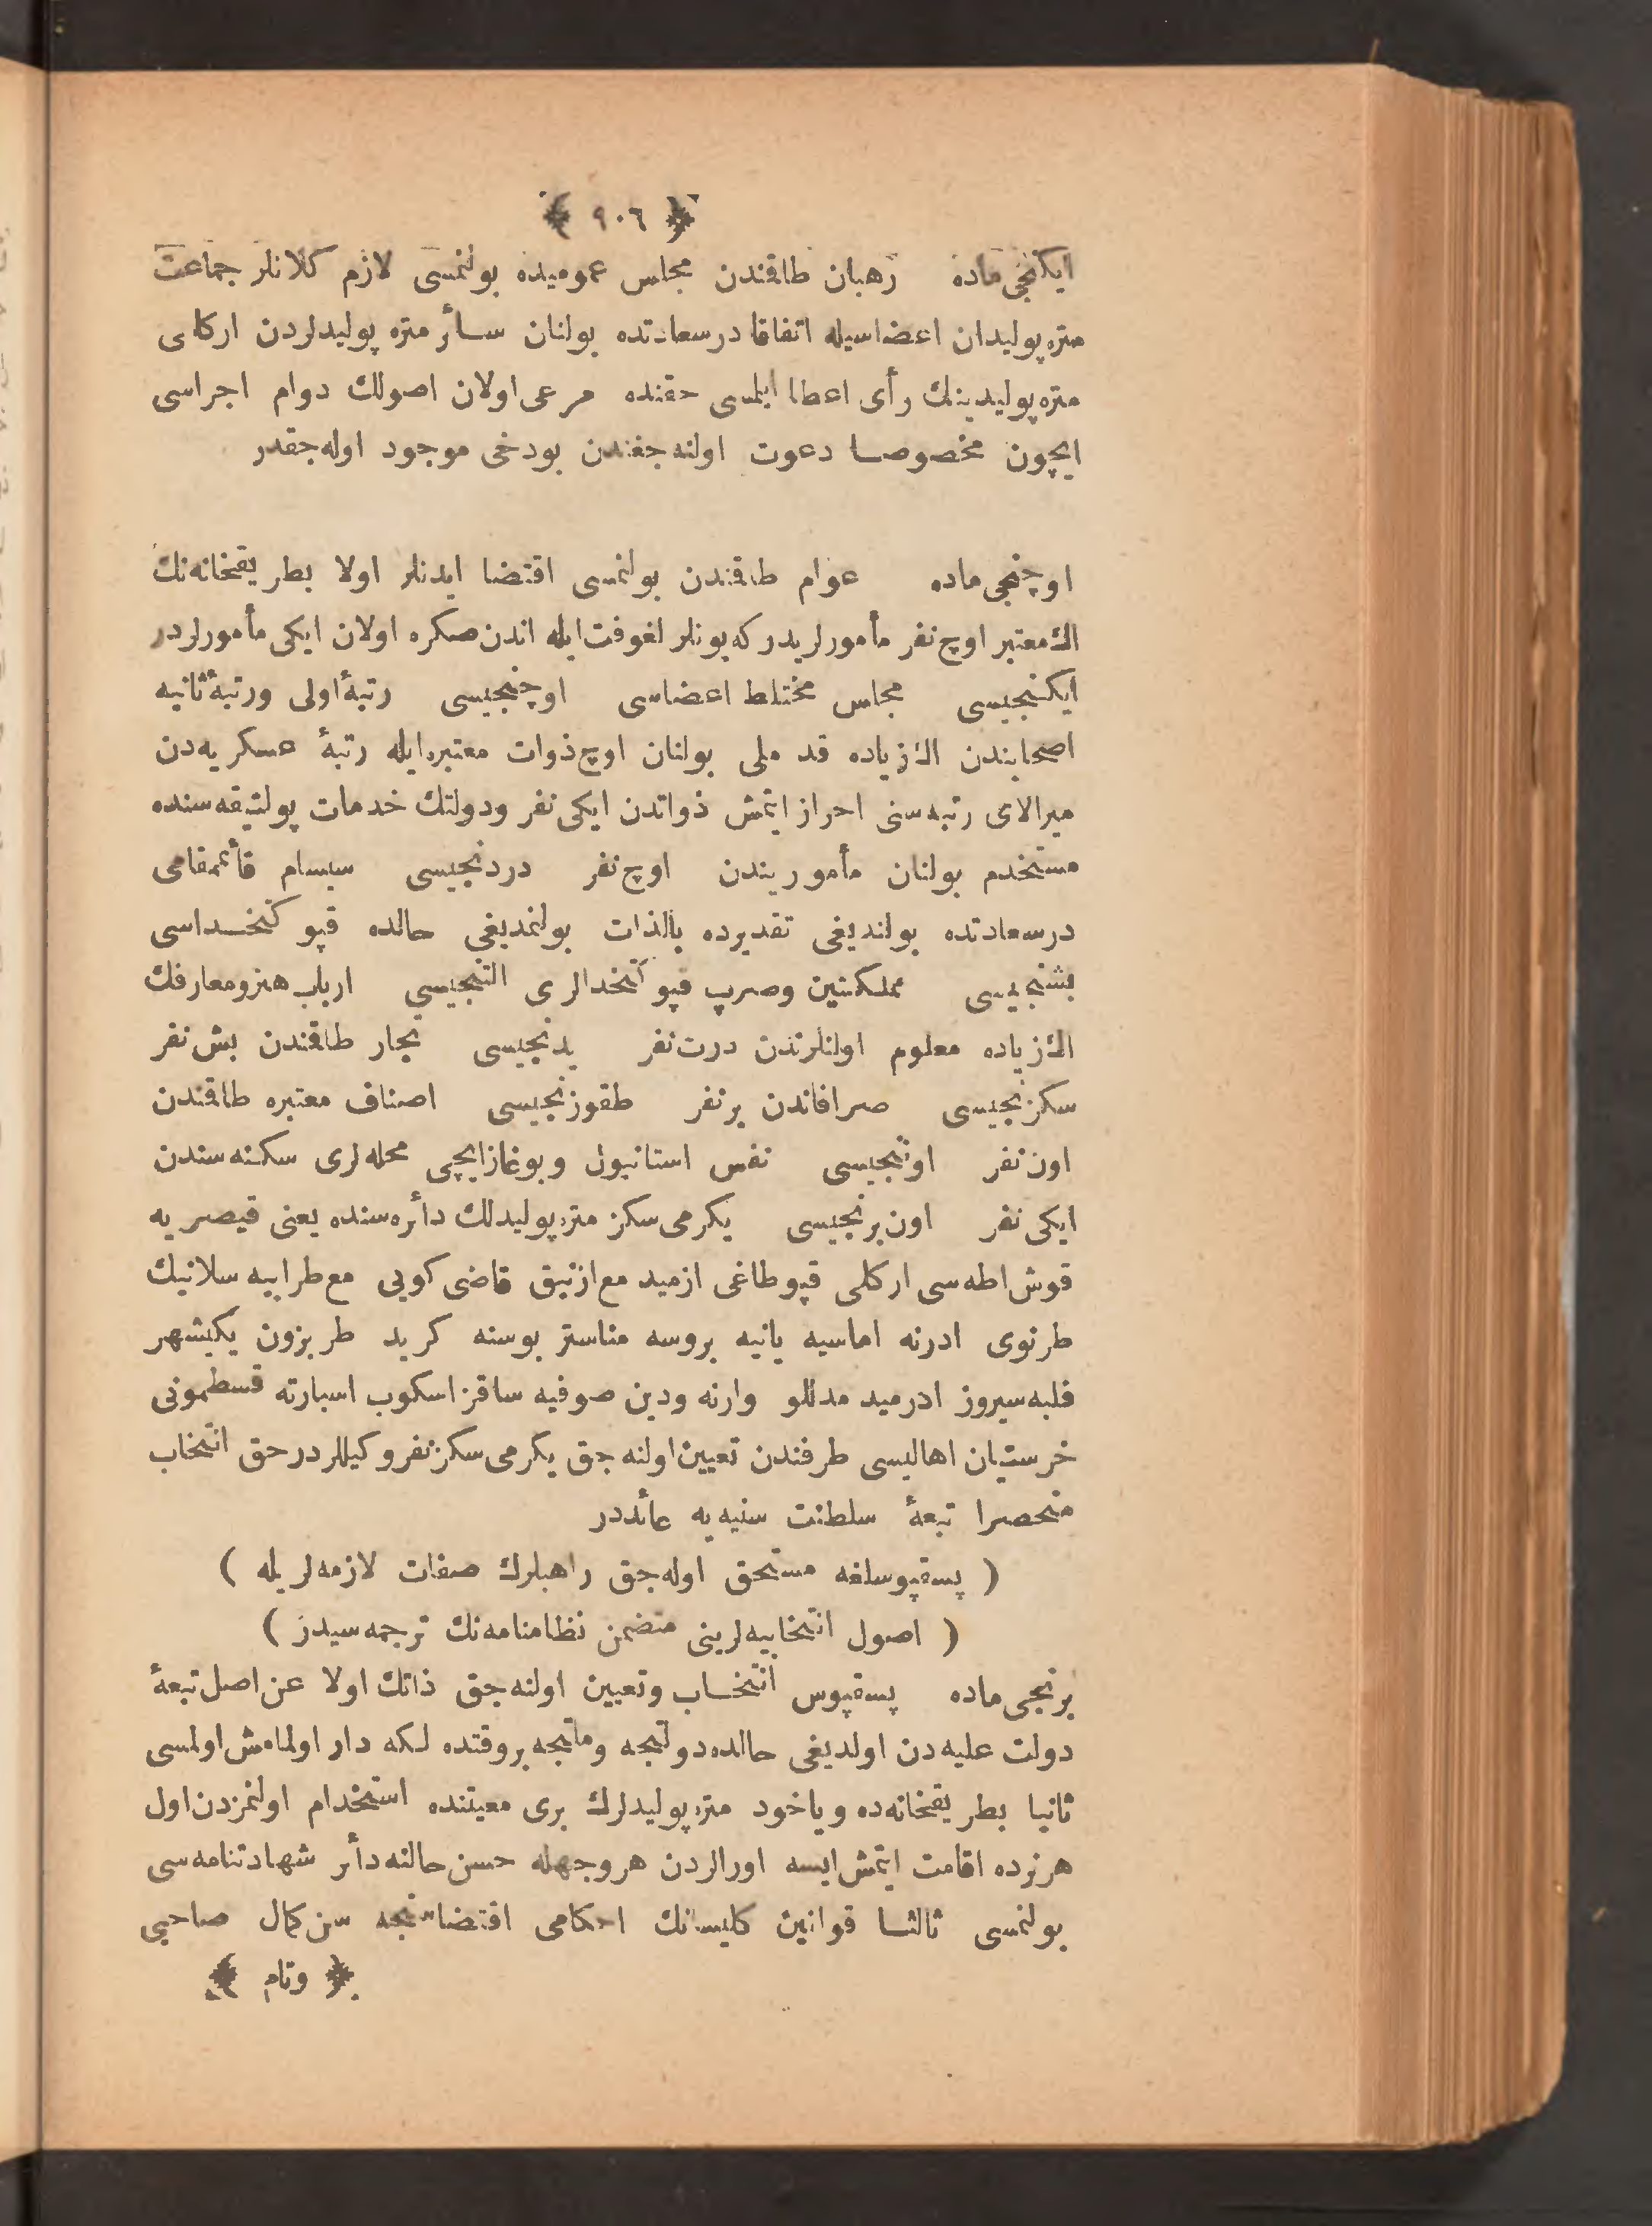 ﴿ ٩٠٦ ﴾
ايكنجى ماده رهبان طاقندن مجلس عموميده بولنمسى لازم كلانلر جماعت
متره پوليدان اعضاسيله اتفاقا درسعادتده بولنان سائر متره پوليدلردن اركلى
متره پوليدينك رأى اعطا ايلمسى حقنده مرعى اولان اصولك دوام اجراسى
ايچون مخصوصا دعوت اولنه جغندن بودخى موجود اوله جقدر
اوچنجى ماده عوام طاقندن بولنمسى اقتضا ايدنلر اولا بطريقخانه نك
اك معتبر اوچ نفر مأمورلريدر كه بونلر لغوفت ايله اندن صكره اولان ايكى مأمورلردر
ايكنجيسى مجلس مختلط اعضاسى اوچنجيسى رتبۀ اولى ورتبۀ ثانيه
اصحابندن اك زياده قدملى بولنان اوچ ذوات معتبره ايله رتبۀ عسكريه دن
ميرالاى رتبه سنى احراز ايتمش ذواتدن ايكى نفر ودولتك خدمات پولتيقه سنده
مستخدم بولنان مأموريندن اوچ نفر دردنجيسى سيسام قائممقامى
درسعادتده بولنديغى تقديرده بالذات بولنمديغى حالده قپو كتخداسى
بشنجيسى مملكتين وصرپ قپو كتخدالرى التنجيسى ارباب هنرومعارفك
اك زياده معلوم اولانلرندن درت نفر يدنجيسى تجار طاقندن بش نفر
سكزنجيسى صرافاندن برنفر طقوزنجيسى اصناف معتبره طاقندن
اون نفر اوننجيسى نفس استانبول وبوغازايچى محله لرى سكنه سندن
ايكى نفر اون برنجيسى يكرمى سكز متره پوليدلك دائره سنده يعنى قيصريه
قوش اطه سى اركلى قپوطاغى ازميد مع ازنيق قاضى كويى مع طرابيه سلانيك
طرنوى ادرنه اماسيه يانيه بروسه مناستر بوسنه كريد طربزون يكيشهر
فلبه سيروز ادرميد مدللو وارنه ودين صوفيه ساقز اسكوب اسبارته قسطمونى
خرستيان اهاليسى طرفندن تعيين اولنه جق يكرمى سكز نفر وكيللر در حق انتخاب
منحصرا تبعۀ سلطنت سنيه يه عائددر
( پسقپوسلغه مستحق اوله جق راهبلرك صفات لازمه لريله )
( اصول انتخابيه لرينى متضمن نظامنامه نك ترجمه سيدر )
برنجى ماده پسقپوس انتخاب وتعيين اولنه جق ذاتك اولا عن اصل تبعۀ
دولت عليه دن اولديغى حالده دولتجه وملتجه بروقتده لكه دار اولمامش اولمسى
ثانيا بطريقخانه ده وياخود متره پوليدلرك برى معيتنده استخدام اولنمزدن اول
هر نرده اقامت ايتمش ايسه اورالردن هر وجهله حسن حالنه دائر شهادتنامه سى
بولنمسى ثالثا قوانين كليسانك احكامى اقتضاسنجه سن كمال صاحبى
﴿ وتام ﴾